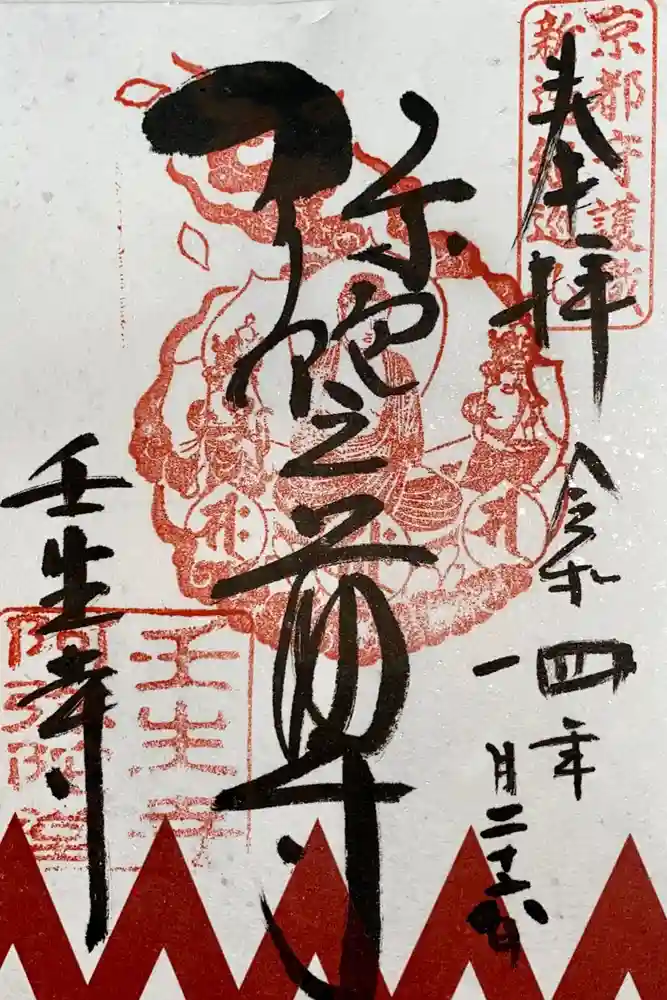 京都守護職
新選組巡礼
奉拝
令和四年
一月二十
弥陀三尊
壬生寺
壬生寺
阿弥陀堂